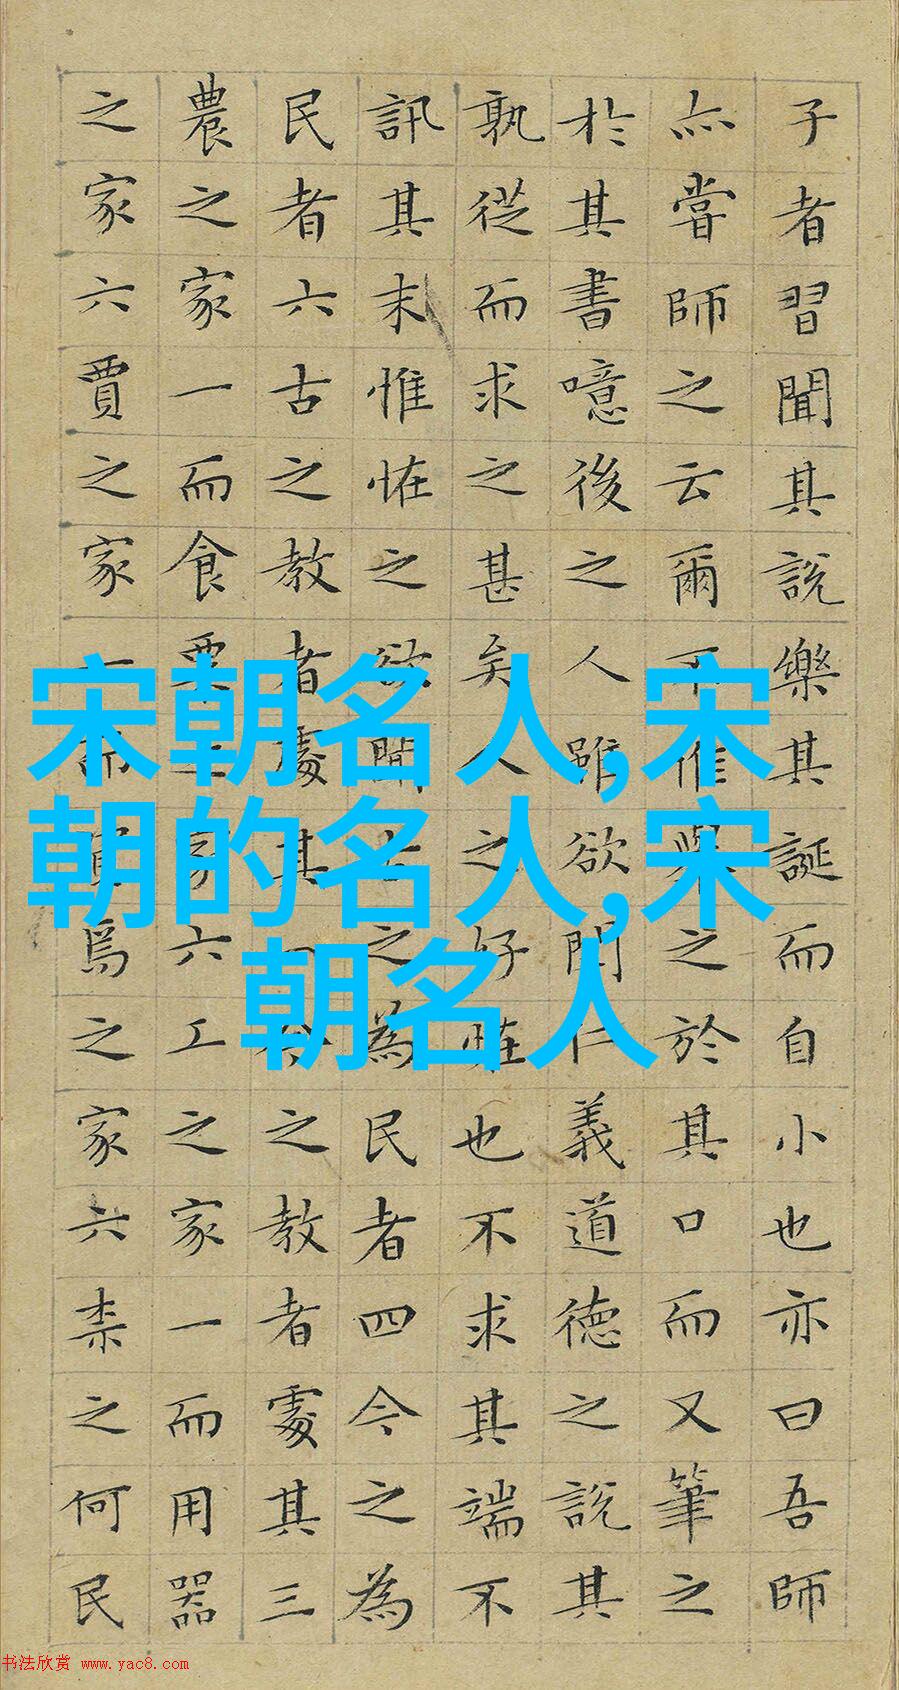 子者習聞其說樂其誕而自小也亦曰吾師
亦嘗師之云爾不惟舉之於其口而又筆之
於其書噫後之人雖欲聞仁義道德之說其
孰從而求之甚矣人之好恠也不求其端不
訊其末惟恠之欲聞古之為民者四今之為
民者六古之教者處其一今之教者處其三
農之家一而食粟之家六工之家一而用器
之家六賈之家一而資焉之家六柰之何民
宋朝名人,宋
朝的名人,宋
朝名人
书法欣赏 www.yac8.com